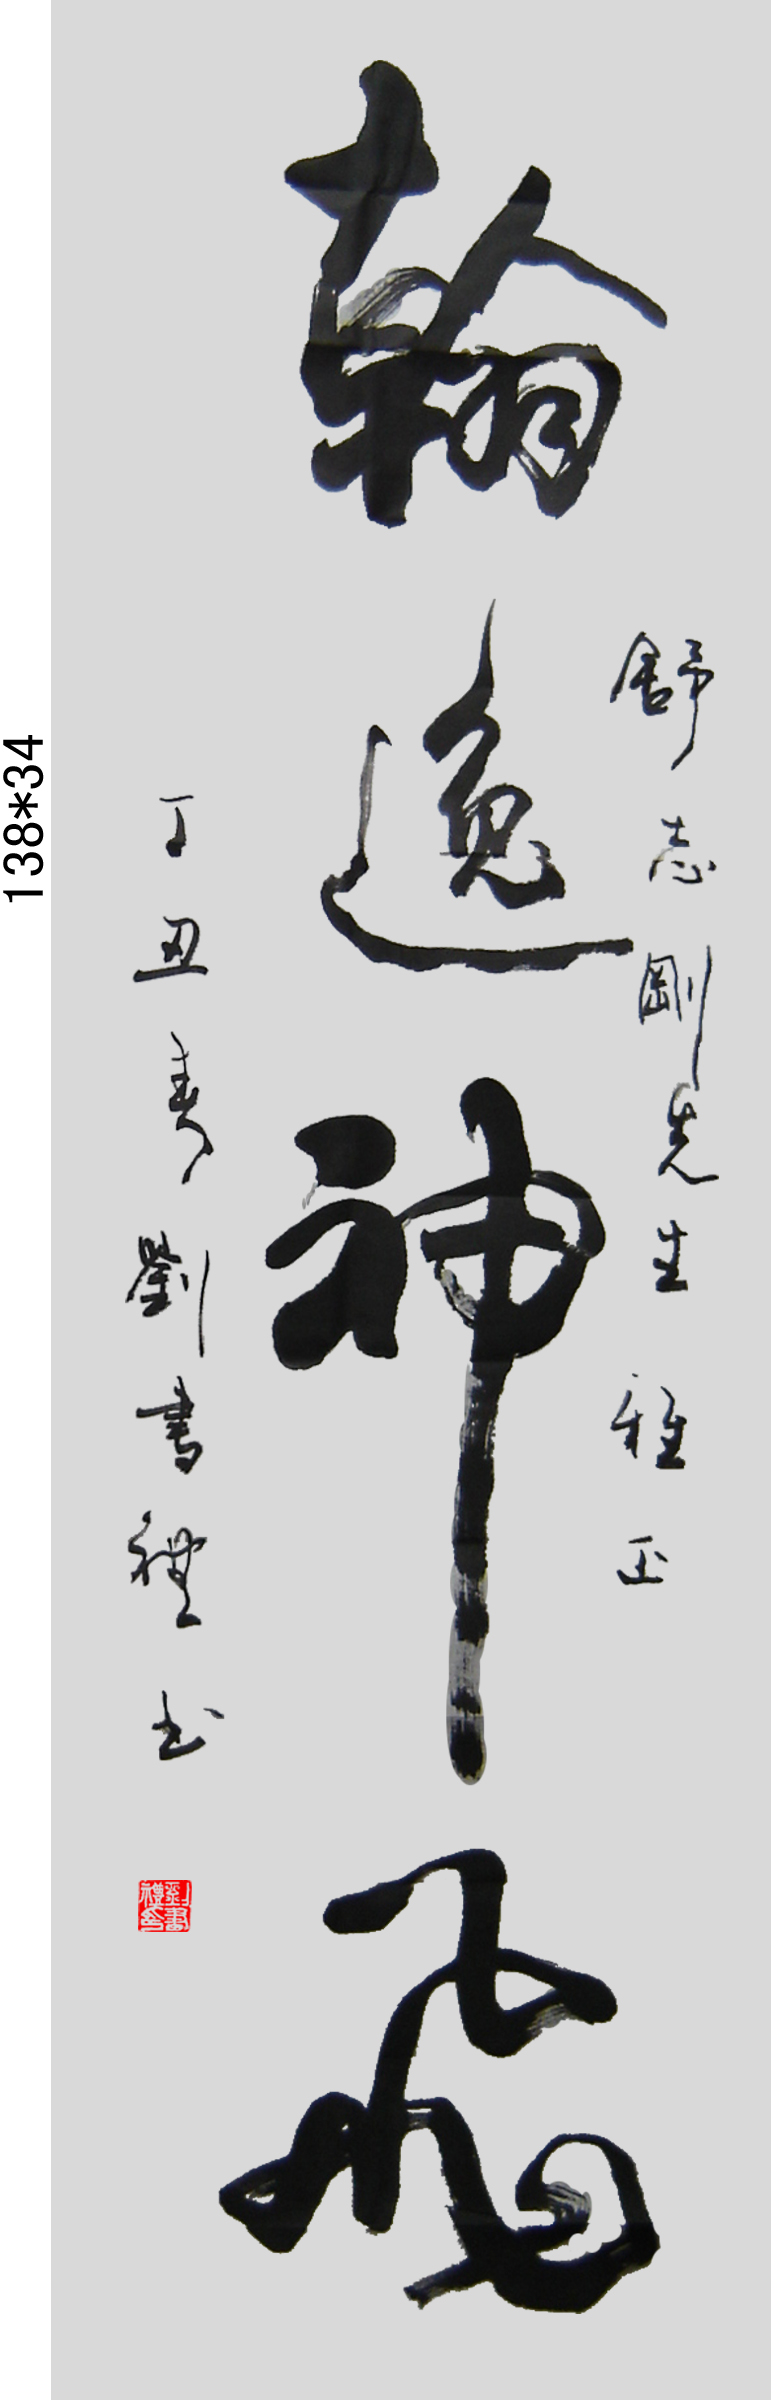 舒志剛先生雅正
翰逸神飛
丁丑春劉書禮书
劉書禮印
138*34